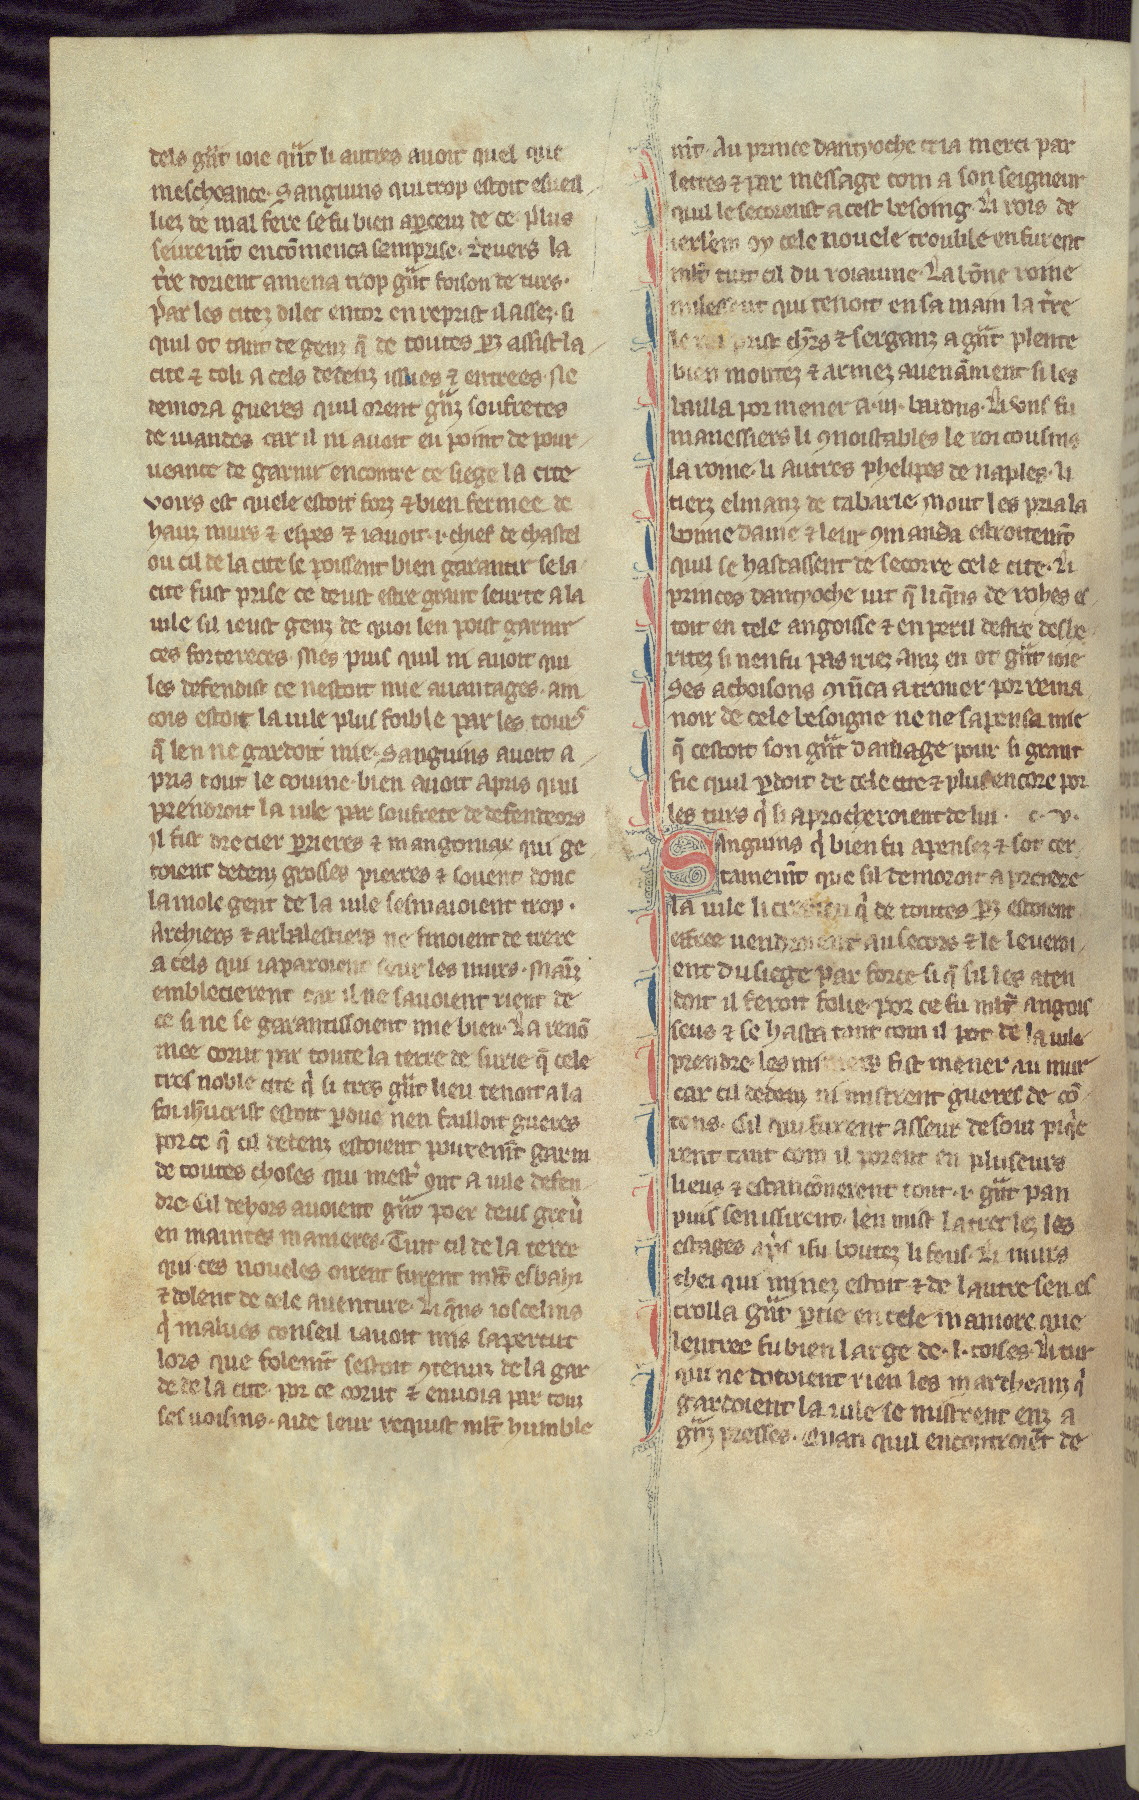 dels gñt ioie qñt li autres auoit quel que
mescheance. Sanguins qui trop estoit esueil
liez de mal fere se fu bien aꝑceuz de ce. plus
seuremẽt encõmenca semprise. Deuers la
tr̃e dorient amena trop gñt foison de turs.
Par les citez dilec entor en reprist il assez. si
quil ot tant de genz q̃ de toutes ꝑz assist la
cite ⁊ toli a cels dedenz issues ⁊ entrees. Ne
demora gueres quil orent gñz soufretes
de uiandes car il ni auoit eu point de pour
ueance de garnir encontre ce siege la cite
voirs est quele estoit forz ⁊ bien fermee de
hauz murs ⁊ espes ⁊ iauoit .i. chief de chastel
ou cil de la cite se poissent bien garantir se la
cite fust prise ce deust estre grant seurte a la
uile sil ieust genz de quoi len poist garnir
ces fortereces. Mes puis quil ni auoit qui
les defendist ce nestoit mie auantages. ain
cois estoit la uile plus foible par les tours
q̃ len ne gardoit mie. Sanguins auoit a
pris tout le couine. bien auoit apris quil
prendroit la uile par soufrete de defendeors
il fist drecier ꝑrieres ⁊ mangoniax qui ge
toient dedenz grosses pierres ⁊ souent donc
la mole gent de la uile sesmaioient trop.
Archiers ⁊ arbalestiers ne finoient de trere
a cels qui iaparoient seur les murs. Mainz
emblecierent car il ne sauoient rient de
ce si ne se garantissoient mie bien. La renõ
mee corut par toute la terre de surie q̃ cele
tres noble cite q̃ si tres gñt lieu tenoit a la
foi ihũcrist estoit ꝑdue nen failloit gueres
por ce q̃ cil dedenz estoient pourement garni
de toutes choses qui mest᷑ ont a uile defen
dre. Cil dehors auoient gñt poer deus greu᷑
en maintes manieres. Tuit cil de la terre
qui ces noueles oirent furent ml̃t esbahi
⁊ dolent de cele auenture. Li q̃ns ioscelins
q̃ malues conseil iauoit mis sapercut
lors que folemẽt sestoit ꝯtenuz de la gar
de de la cite. por ce corut ⁊ enuoia par touz
ses uoisins. aide leur requist ml̃t humble
mẽt. Au prince dantyoche cria merci par
lettres ⁊ par message com a son seigneur
quil le secoreust a cest besoing. Li rois de
ierl'em oy cele nouele trouble en furent
ml̃t tuit cil du roiaume. La bõne roine
milessent qui tenoit en sa main la tr̃e
le roi prist ch̃rs ⁊ serganz a gñt plente
bien montez ⁊ armez auenãment si les
bailla por mener a .iii. barons. Li vns fu
manessiers li ꝯnoistables le roi cousins
la roine. li autres phelipes de naples. li
tierz elinanz de tabarie. Mout les pria la
bonne dame ⁊ leur ꝯmanda estroitemẽt
quil se hastassent de secorre cele cite. Li
princes dantyoche uit q̃ li q̃ns de rohes es
toit en tele angoisse ⁊ en peril destre deshe
ritez si nen fu pas iriez. ainz en ot gñt ioie
Ses achoisons ꝯmẽca a trouer por rema
noir de cele besoigne ne ne sapensa mie
q̃ cestoit son gñt damage pour si grant
fie quil ꝑdoit de cele cite ⁊ plus encore por
les turs q̃ si aprocheroient de lui. c. v.
Sanguins q̃ bien fu apensez ⁊ sot cer
tainemẽt que sil demoroit a prendre
la uile li crestien q̃ de toutes ꝑz estoient
effree uendroient au secors ⁊ le leueroi
ent du siege par force si q̃ sil les aten
doit il feroit folie. por ce fu ml̃t angois
seus ⁊ se hasta tant com il pot de la uile
prendre. les mineurs fist mener au mur
car cil dedenz ni mistrent gueres de cõ
tens. Cil qui furent asseur desouz piq̃e
rent tant com il porent en pluseurs
lieus ⁊ estancõnerent tout .i. gñt pan
puis sen issirent. len mist latret lez les
estages ap̃s ifu boutez li feus. Li murs
chei qui minez estoit ⁊ de lautre sen es
crolla gñt ꝑtie en tele maniere que
lentree fu bien large de .l. toises. Li tur
qui ne dotoient rien les marcheanz q̃
gardoient la uile se mistrent enz a
gñz presses. Quan quil encontroiẽt de